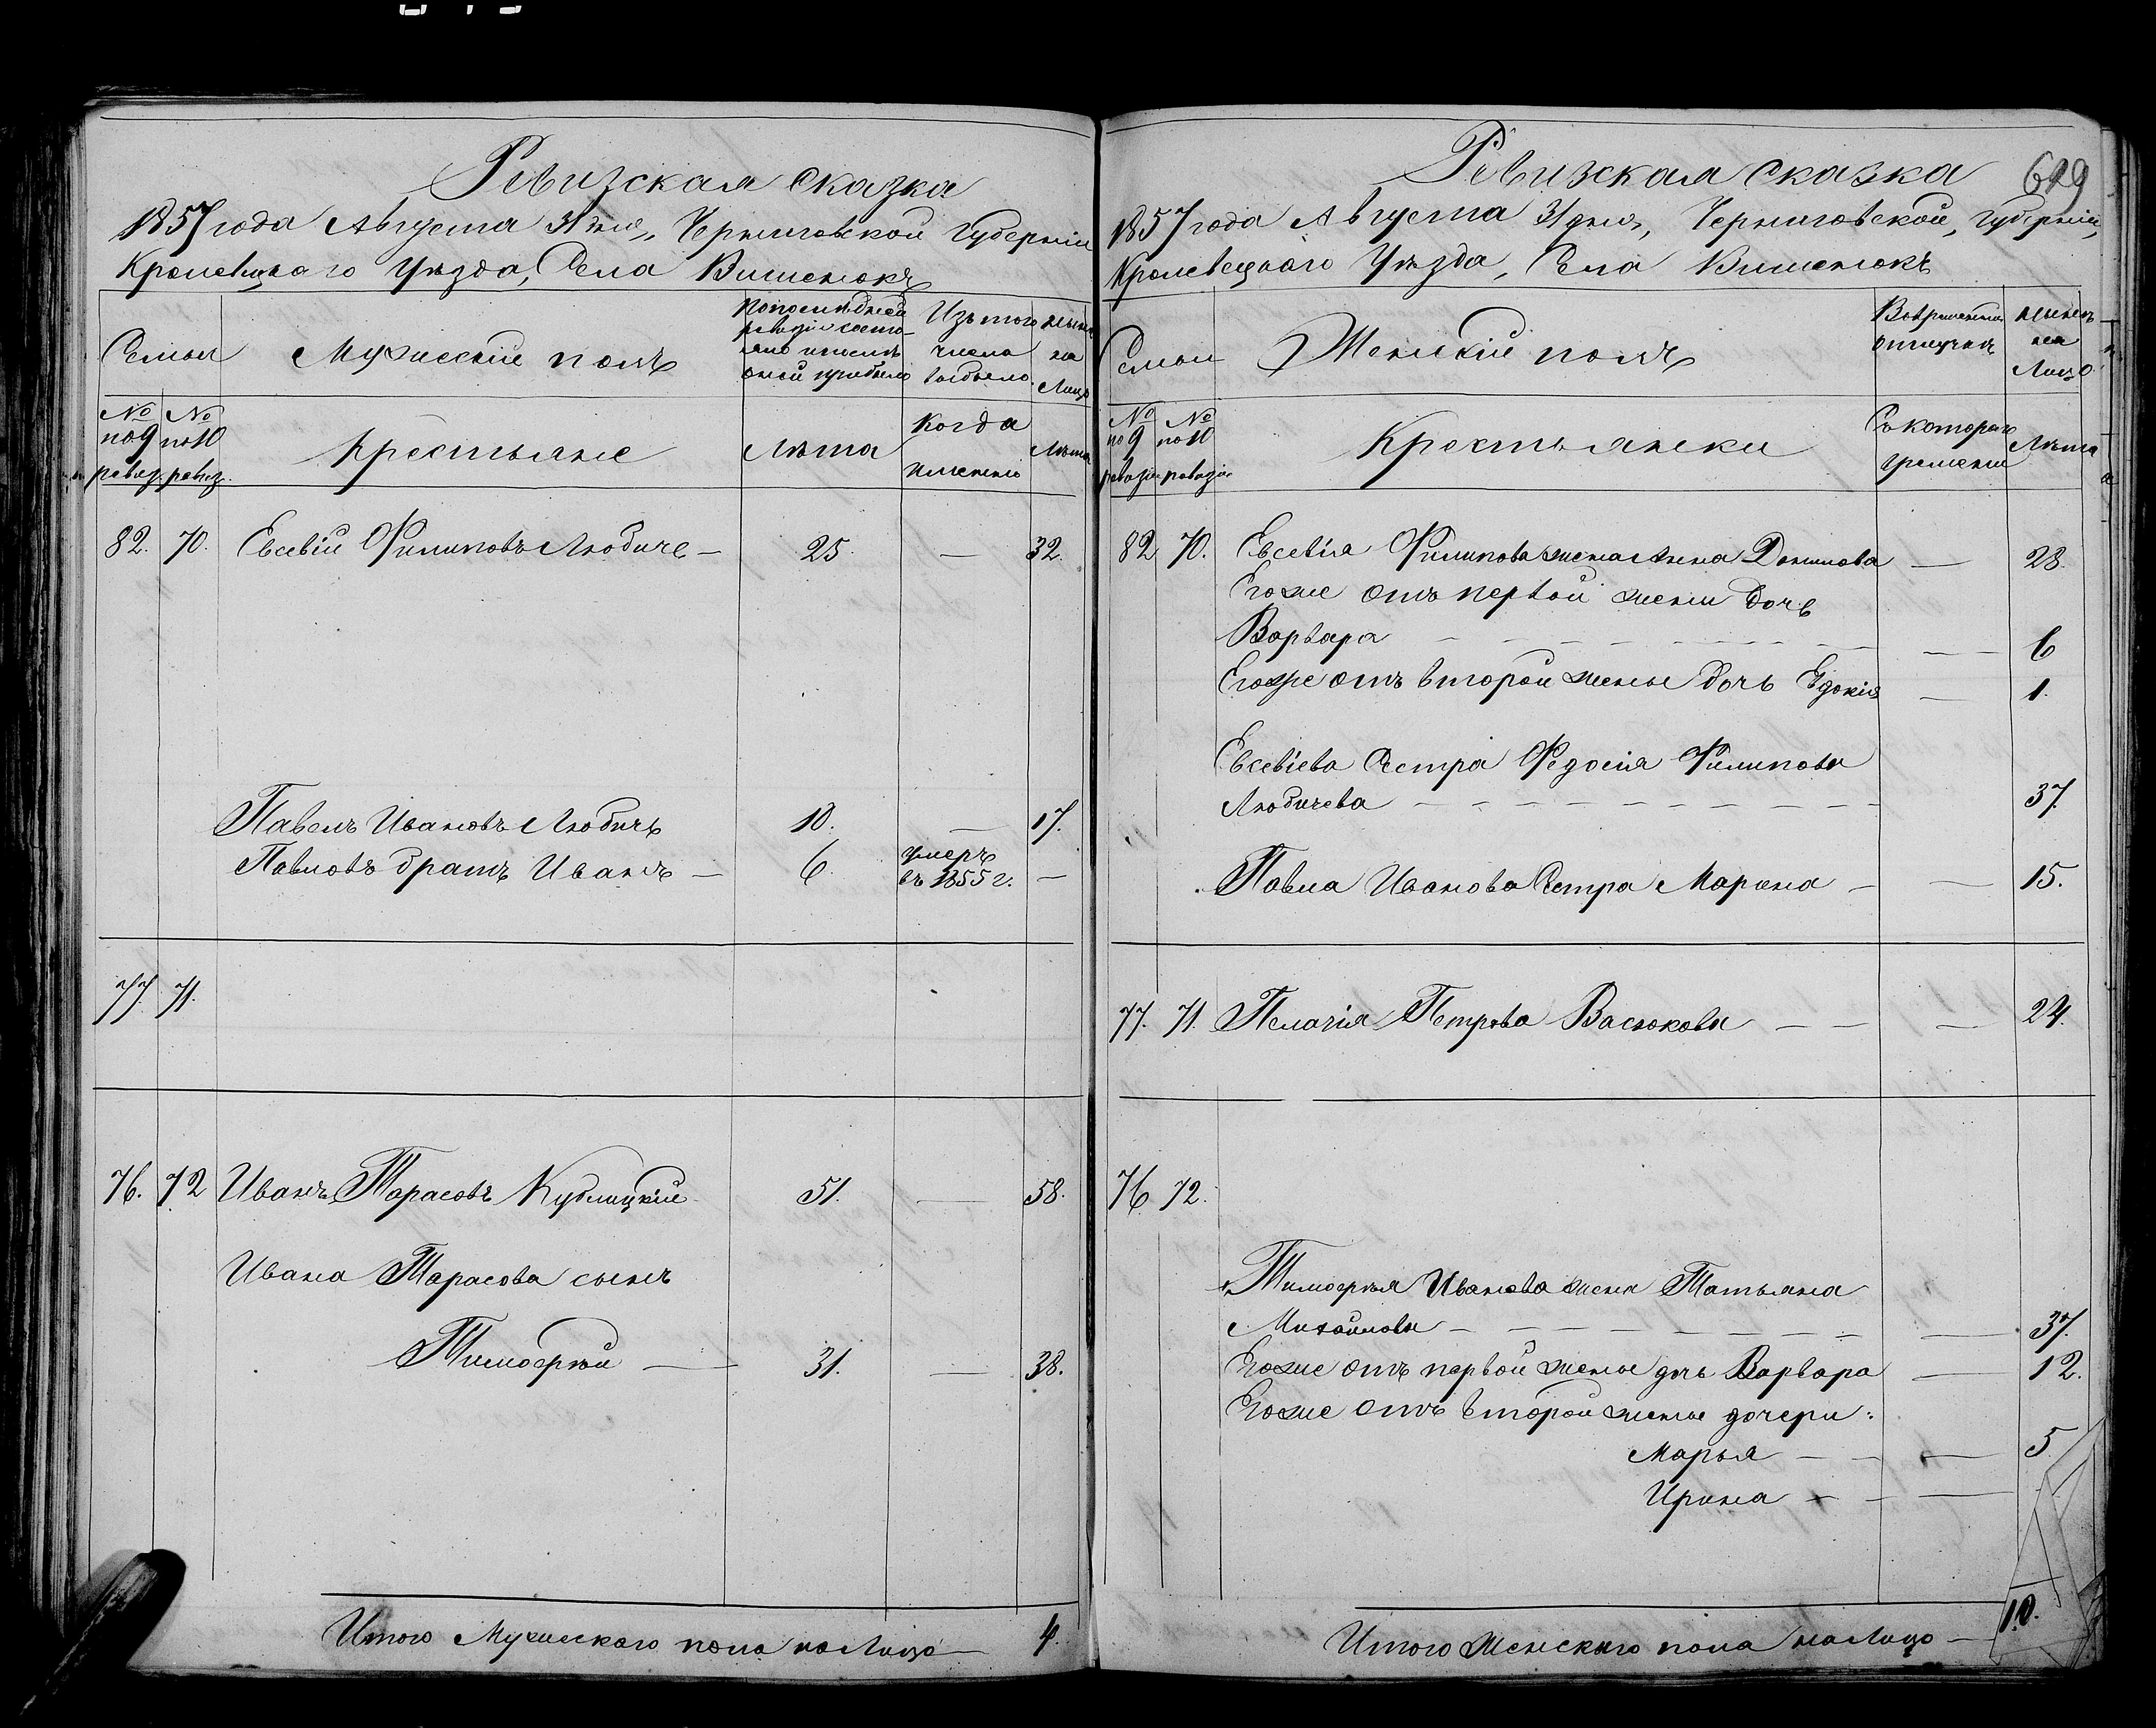 Ревизская сказка
1857 года Августа 31 дня, Черниговской Губерніи
Кролевецкаго Уѣзда, Села Вишенокъ
Семьи
Мужескій полъ
По последней ревизіи состояло и после оной прибыло
Изъ того числа выбыло
Ныне на Лицо
№ по 9 ревиз.
№ по 10 ревиз.
Крестьяне
Лѣта
Когда именно
Лѣта
82. 70. Евсевій Филиповъ Любиче — 25. — 32.
Павелъ Ивановъ Любичъ 10. — 17.
Павловъ братъ Иванъ — 6. умеръ въ 1855 г. —
77. 71.
76. 72 Иванъ Тарасовъ Кублицкій 51. — 58.
Ивана Тарасова сынъ
Тимофѣй — 31. — 38.
Итого Мужескаго пола на Лицо — 4.
Ревизская сказка
619
1857 года Августа 31 дня, Черниговской, Губерніи,
Кролевецкаго Уѣзда, Села Вишенокъ
Семьи
Женскій полъ
Во временной отлучкѣ
Ныне на Лицо
№ по 9 ревизіи
№ по 10 ревизіи
Крестьянки
Съ котораго времени
Лѣта
82 70. Евсевія Филипова жена Анна Данилова — 28.
Егоже отъ первой жены дочь
Варвара — — 6
Егоже отъ второй жены дочь Евдокія — 1.
Евсевіева Сестра Федосія Филипова
Любичева — 37.
Павла Иванова Сестра Марина — — 15.
77. 71. Пелагія Петрова Васюкова — — 24.
76 72.
Тимофѣя Иванова жена Татьяна
Михайлова — — 37.
Егоже отъ первой жены дочь Варвара — 12.
Егоже отъ второй жены дочери:
Марья — — 5
Ирина — —
Итого Женскаго пола на Лицо — 10.